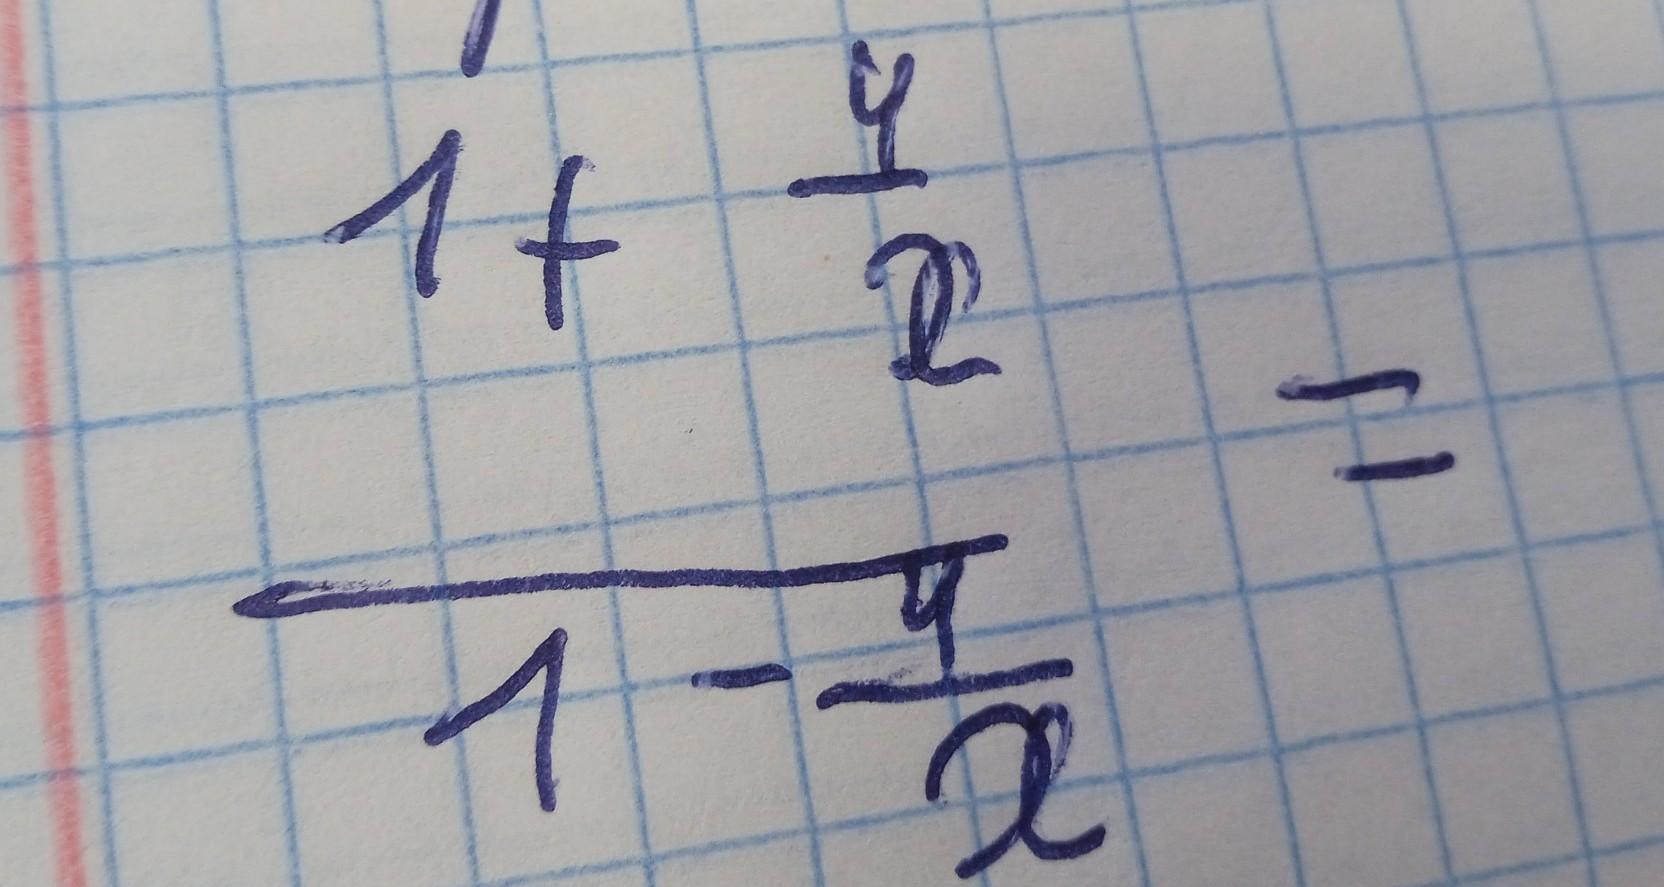 1 + y/x
=
1 - y/x